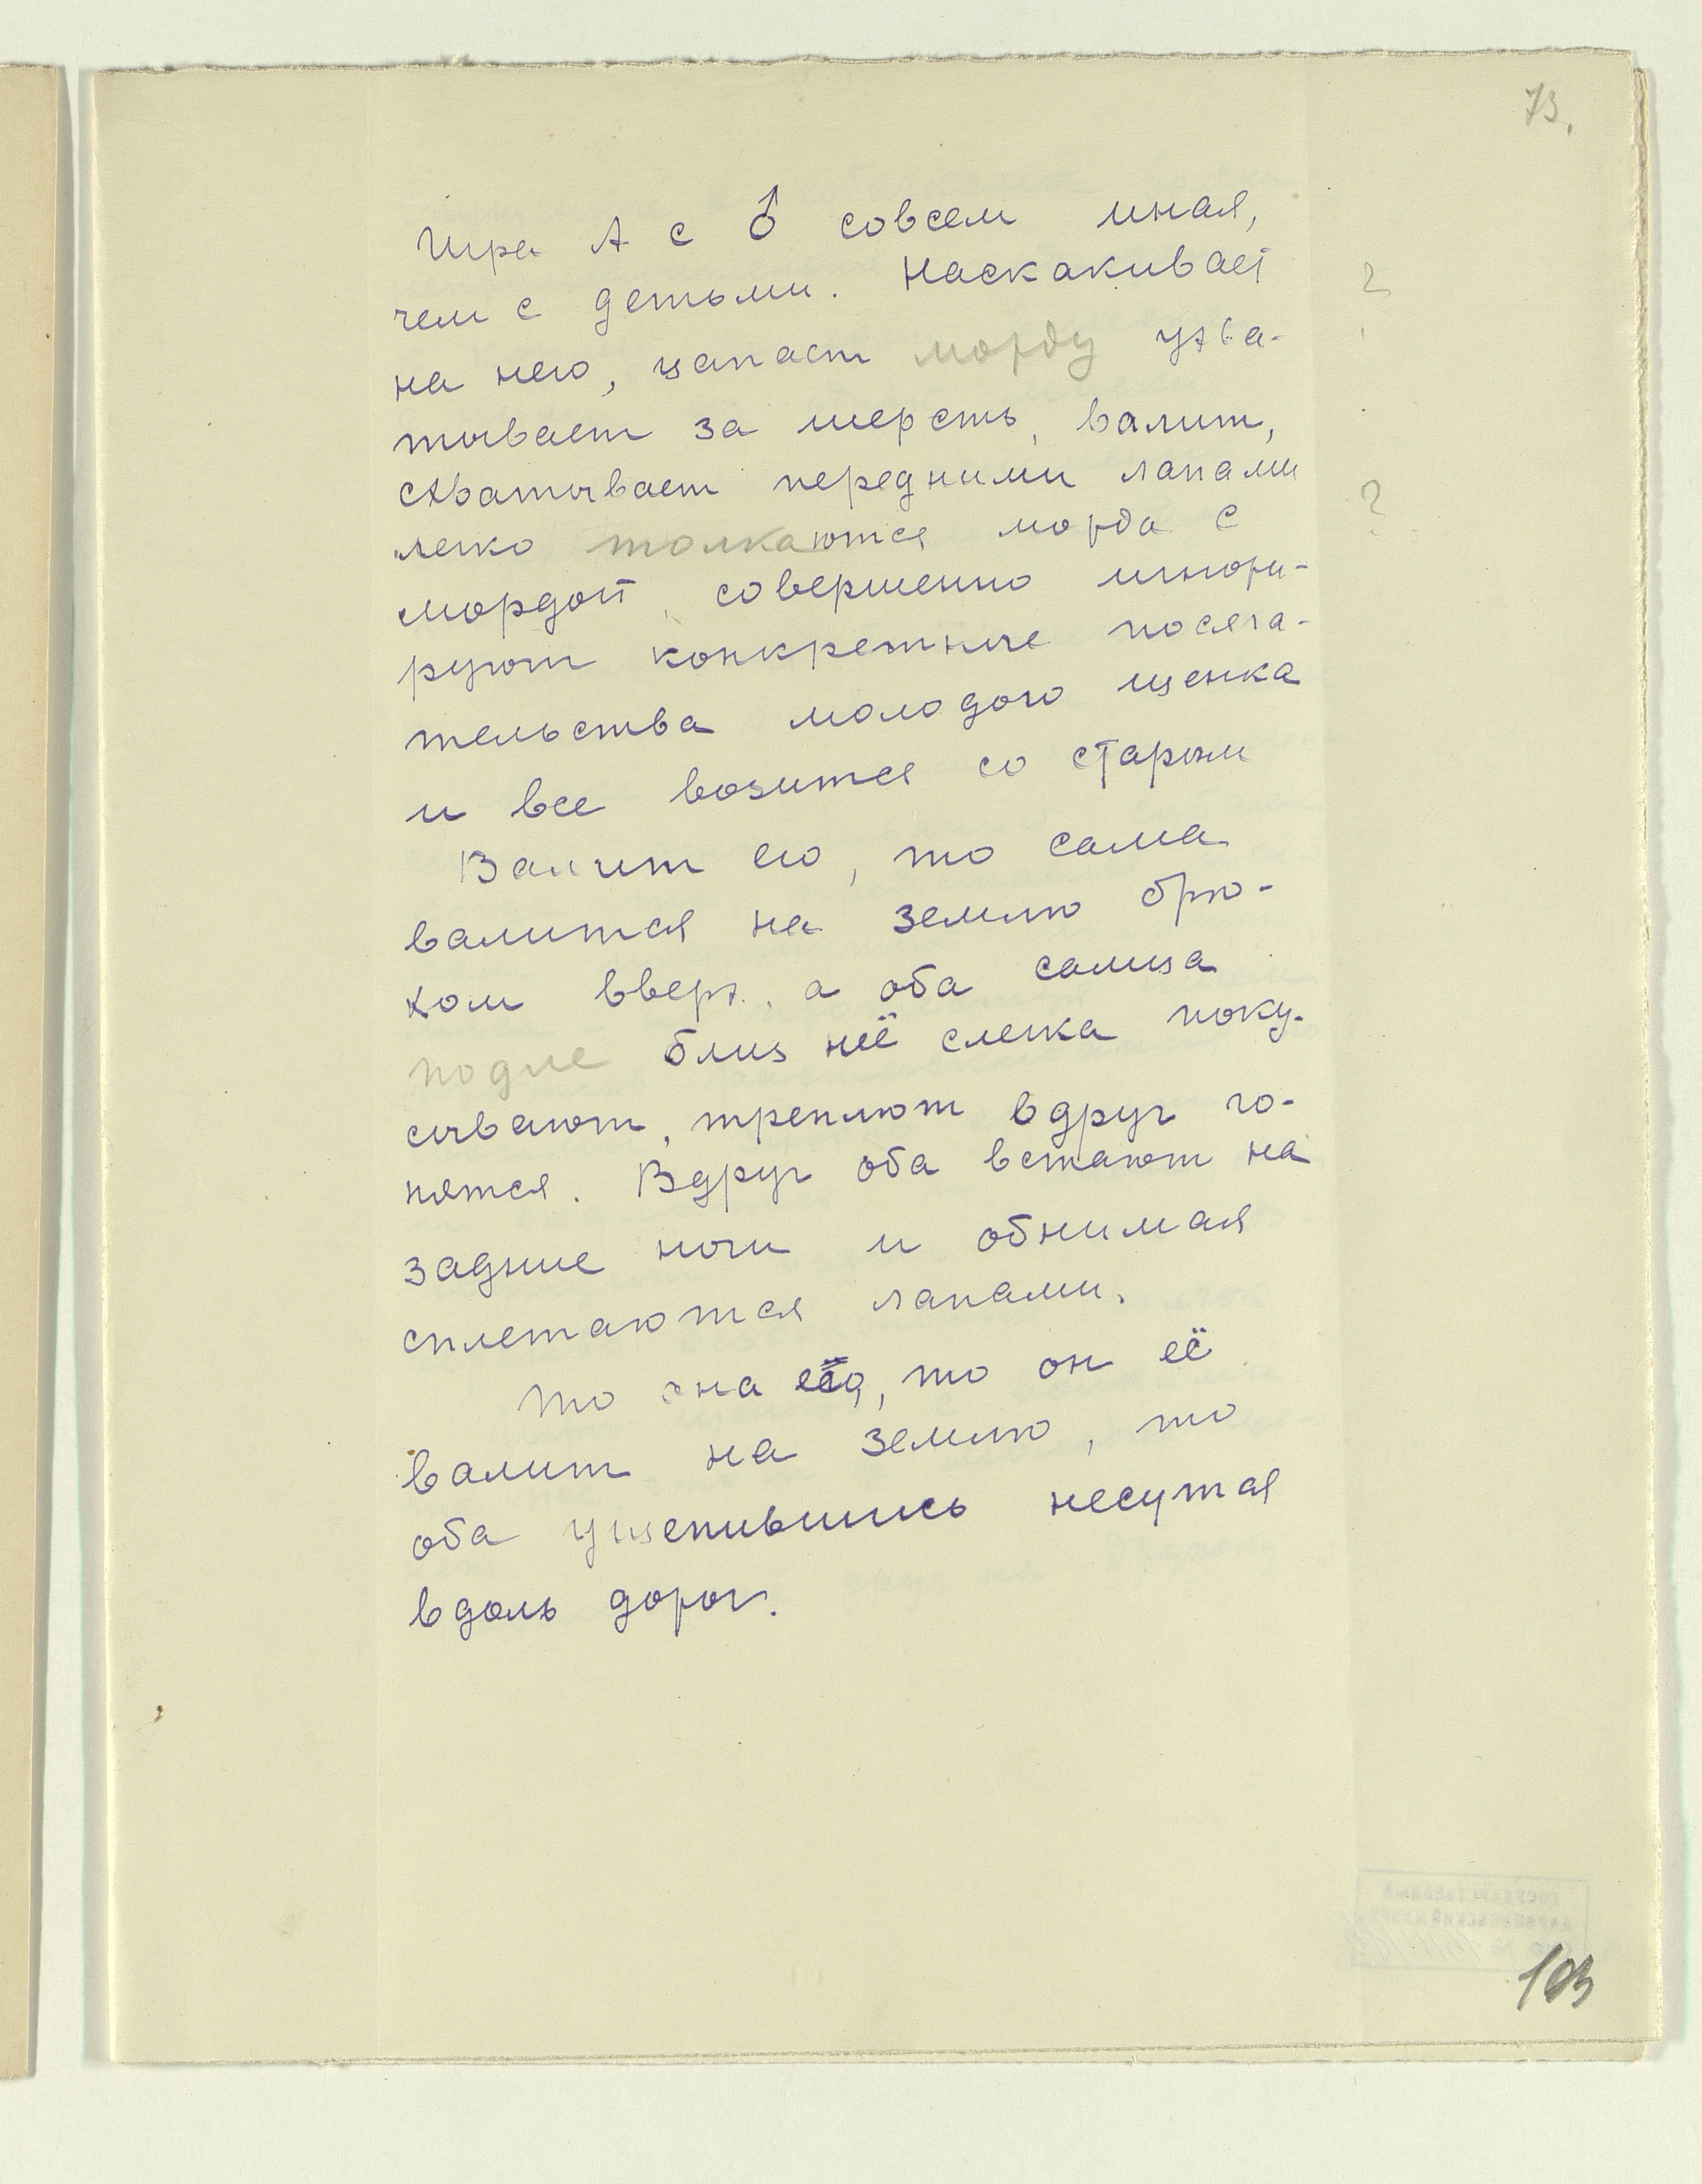 73.
Игра А с ♂ совсем иная,
чем с детьми. Наскакивает
?
на него, цапает морду ухва-
тывает за шерсть, валит,
схватывает передними лапами
?
легко толкаются морда с
мордой, совершенно игнори-
руют конкретные посяга-
тельства молодого щенка
и все возится со старым
Валит его, то сама
валится на землю брю-
хом вверх, а оба самца
подле близ неё слегка поку-
сывают, треплют вдруг го-
нятся. Вдруг оба встают на
задние ноги и обнимая
сплетаются лапами.
То она его, то он её
валит на землю, то
оба уцепившись несутся
вдоль дорог.
103